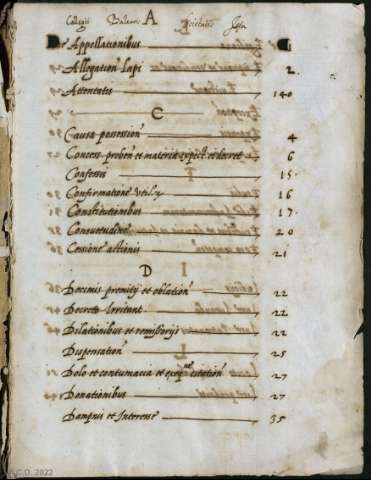 Collegii A Societatis Jesu
De Appellationibus 1
Allegation Lapi 2
Attentatis 140
C
Causa possession 4
Concess. proben et materia expect et decret 6
Confessis 15
Confirmatione Utili 16
Constitutionibus 17
Consuetudine 20
Cessione actionis 21
D
Decimis premitÿ et oblation 22
Decreto Irritant 22
Dilationibus et remissorijs 22
Dispensation 25
Dolo et contumacia et citation 27
Donationibus 27
Dampnis et Interesse 35
2022